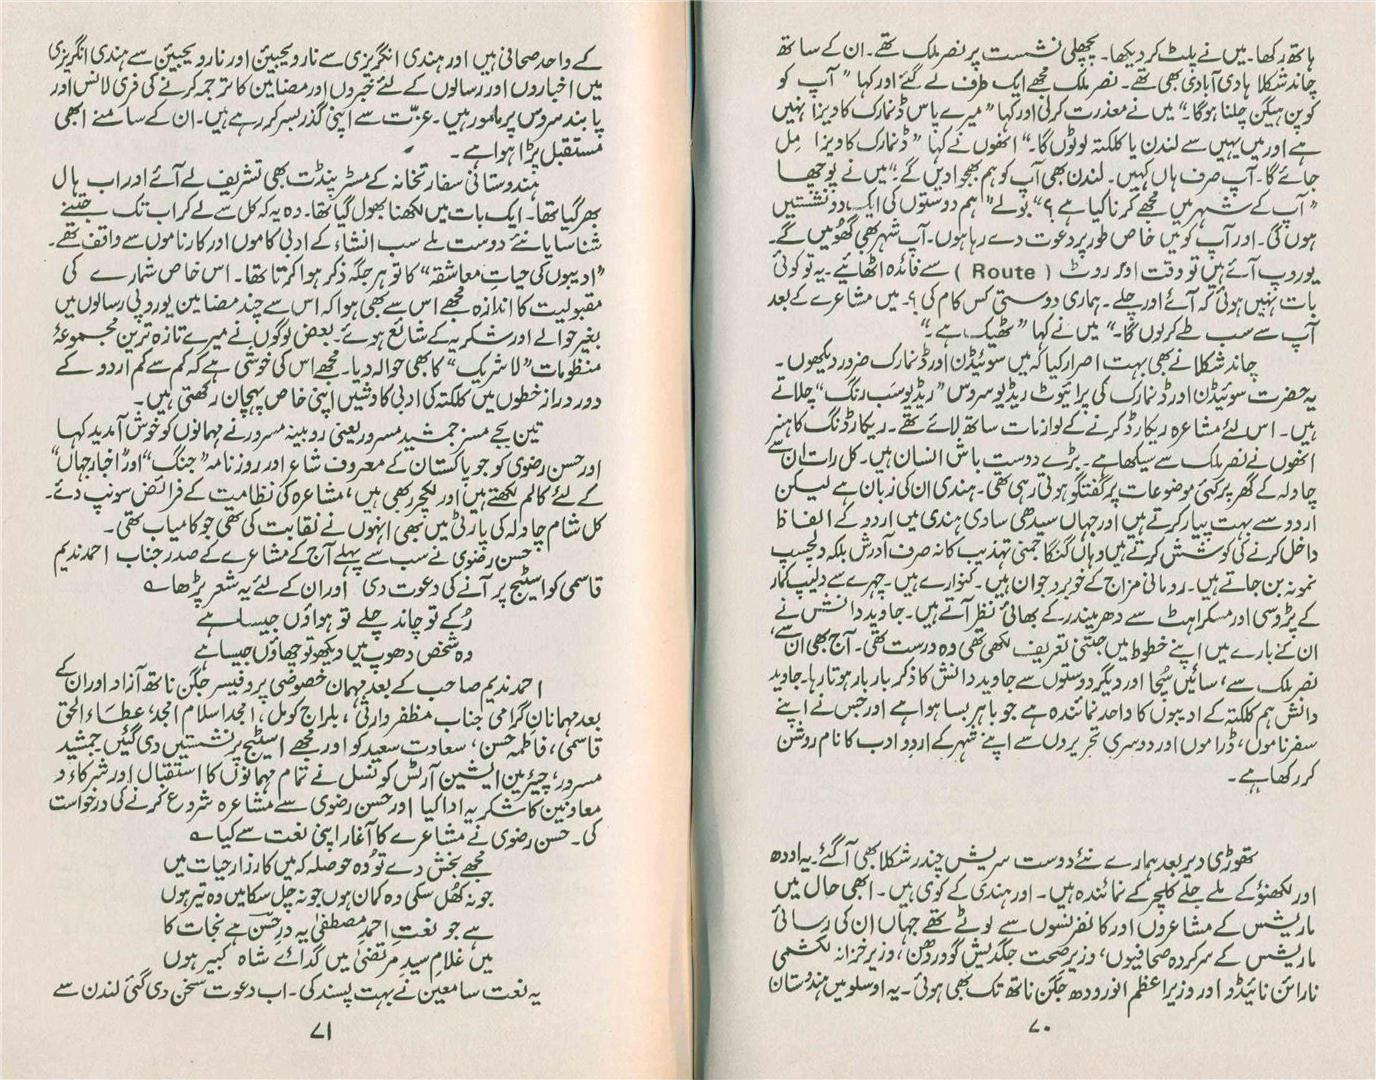 ہاتھ رکھا۔ میں نے پلٹ کر دیکھا۔ پچھلی نشست پر نصر ملک تھے۔ ان کے ساتھ
چاند شکلا ہادی آبادی بھی تھے۔ نصر ملک مجھے ایک طرف لے گئے اور کہا " آپ کو
کوپن ہیگن چلنا ہوگا۔" میں نے معذرت کرلی اور کہا " میرے پاس ڈنمارک کا ویزا نہیں
ہے اور میں یہیں سے لندن یا کلکتہ لوٹوں گا۔" انھوں نے کہا " ڈنمارک کا ویزا مِل
جائے گا۔ آپ صرف ہاں کہیں۔ لندن بھی آپ کو ہم بھجوا دیں گے۔" میں نے پوچھا
" آپ کے شہر میں مجھے کرنا کیا ہے ؟" بولے " ہم دوستوں کی ایک دو نشستیں
ہوں گی۔ اور آپ کو میں خاص طور پر دعوت دے رہا ہوں۔ آپ شہر بھی گھومیں گے۔
یوروپ آئے ہیں تو وقت اور روٹ ( Route ) سے فائدہ اٹھائیے۔ یہ تو کوئی
بات نہیں ہوئی کہ آئے اور چلے۔ ہماری دوستی کس کام کی ؟۔ میں مشاعرے کے بعد
آپ سے سب طے کر لوں گا۔" میں نے کہا " ٹھیک ہے۔"
چاند شکلا نے بھی بہت اصرار کیا کہ میں سوئیڈن اور ڈنمارک ضرور دیکھوں۔
یہ حضرت سوئیڈن اور ڈنمارک کی پرائیوٹ ریڈیو سروس " ریڈیو سَب رنگ" چلاتے
ہیں۔ اس لئے مشاعرہ ریکارڈ کرنے کے لوازمات ساتھ لائے تھے۔ ریکارڈنگ کا ہنر
انھوں نے نصر ملک سے سیکھا ہے۔ بڑے دوست باش انسان ہیں۔ کل رات ان سے
چاولہ کے گھر پر کئی موضوعات پر گفتگو ہوتی رہی تھی۔ ہندی ان کی زبان ہے لیکن
اردو سے بہت پیار کرتے ہیں اور جہاں سیدھی سادی ہندی میں اردو کے الفاظ
داخل کرنے کی کوشش کرتے ہیں وہاں گنگا جمنی تہذیب کا نہ صرف آدرش بلکہ دلچسپ
نمونہ بن جاتے ہیں۔ رومانی مزاج کے خوبرو جوان ہیں۔ کنوارے ہیں۔ چہرے سے دلیپ کمار
کے پڑوسی اور مسکراہٹ سے دھرمیندر کے بھائی نظر آتے ہیں۔ جاوید دانش نے
ان کے بارے میں اپنے خطوط میں جتنی تعریف لکھی تھی وہ درست تھی۔ آج بھی ان سے،
نصر ملک سے، سائیں سُچّا اور دیگر دوستوں سے جاوید دانش کا ذکر بار بار ہوتا رہا۔ جاوید
دانش ہم کلکتہ کے ادیبوں کا واحد نمائندہ ہے جو باہر بسا ہوا ہے اور جس نے اپنے
سفر ناموں، ڈراموں اور دوسری تحریروں سے اپنے شہر کے اردو ادب کا نام روشن
کر رکھا ہے۔
تھوڑی دیر بعد ہمارے نئے دوست سریش چندر شکلا بھی آگئے۔ یہ اودھ
اور لکھنؤ کے ملے جلے کلچر کے نمائندہ ہیں۔ اور ہندی کے کوی ہیں۔ ابھی حال میں
ماریشس کے مشاعروں اور کانفرنسوں سے لوٹے تھے جہاں ان کی رسائی
ماریشس کے سرکردہ صحافیوں، وزیر صحت جگدیش گوردھن، وزیر خزانہ لکشمی
نارائن نائیڈو اور وزیر اعظم انورودھ جگن ناتھ تک بھی ہوئی۔ یہ اوسلو میں ہندوستان
۷۰
کے واحد صحافی ہیں اور ہندی انگریزی سے نارویجیین اور نارویجیین سے ہندی انگریزی
میں اخباروں اور رسالوں کے لئے خبروں اور مضامین کا ترجمہ کرنے کی فری لانس اور
پابند سروس پر مامور ہیں۔ عزّت سے اپنی گذر بسر کر رہے ہیں۔ ان کے سامنے ابھی
مستقبل پڑا ہوا ہے۔
ہندوستانی سفارتخانہ کے مسٹر پنڈت بھی تشریف لے آئے اور اب ہال
بھر گیا تھا۔ ایک بات میں لکھنا بھول گیا تھا۔ وہ یہ کہ کل سے لے کر اب تک جتنے
شناسا یا نئے دوست ملے سب انشاء کے ادبی کاموں اور کارناموں سے واقف تھے۔
"ادیبوں کی حیاتِ معاشقہ" کا تو ہر جگہ ذکر ہوا کرتا تھا۔ اس خاص شمارے کی
مقبولیت کا اندازہ مجھے اس سے بھی ہوا کہ اس سے چند مضامین یوروپی رسالوں میں
بغیر حوالے اور شکریہ کے شائع ہوئے۔ بعض لوگوں نے میرے تازہ ترین مجموعۂ
منظومات "لاشریک" کا بھی حوالہ دیا۔ مجھے اس کی خوشی ہے کہ کم سے کم اردو کے
دور دراز خطوں میں کلکتہ کی ادبی کاوشیں اپنی خاص پہچان رکھتی ہیں۔
تین بجے مسز جمشید مسرور یعنی روبینہ مسرور نے مہمانوں کو خوش آمدید کہا
اور حسن رضوی کو جو پاکستان کے معروف شاعر اور روزنامہ "جنگ" اور اخبار جہاں"
کے لئے کالم لکھتے ہیں اور لکچرر بھی ہیں، مشاعرہ کی نظامت کے فرائض سونپ دئے۔
کل شام چاولہ کی پارٹی میں بھی انہوں نے نقابت کی تھی جو کامیاب تھی۔
حسن رضوی نے سب سے پہلے آج کے مشاعرے کے صدر جناب احمد ندیم
قاسمی کو اسٹیج پر آنے کی دعوت دی اور ان کے لئے یہ شعر پڑھا؎
رُکے تو چاند چلے تو ہواؤں جیسا ہے
وہ شخص دھوپ میں دیکھو تو چھاؤں جیسا ہے
احمد ندیم صاحب کے بعد مہمان خصوصی پروفیسر جگن ناتھ آزاد اور ان کے
بعد مہمانان گرامی جناب مظفر وارثی، بلراج کومل، امجد اسلام امجد، عطاء الحق
قاسمی، فاطمہ حسن، سعادت سعید کو اور مجھے اسٹیج پر نشستیں دی گئیں۔ جمشید
مسرور، چیئرمین ایشین آرٹس کونسل نے تمام مہمانوں کا استقبال اور شرکاء و
معاونین کا شکریہ ادا کیا اور حسن رضوی سے مشاعرہ شروع کرنے کی درخواست
کی۔ حسن رضوی نے مشاعرے کا آغاز اپنی نعت سے کیا؎
مجھے بخش دے تو وُہ حوصلہ کہ میں کارزارِ حیات میں
جو نہ کھُل سکی وہ کمان ہوں جو نہ چل سکا میں وہ تیر ہوں
ہے جو نعتِ احمدِ مصطفیٰ یہ درِ حسنؔ ہے نجات کا
میں غلامِ سیدِ مرتضیٰ میں گدائے شاہ کبیر ہوں
یہ نعت سامعین نے بہت پسند کی۔ اب دعوت سخن دی گئی لندن سے
۷۱